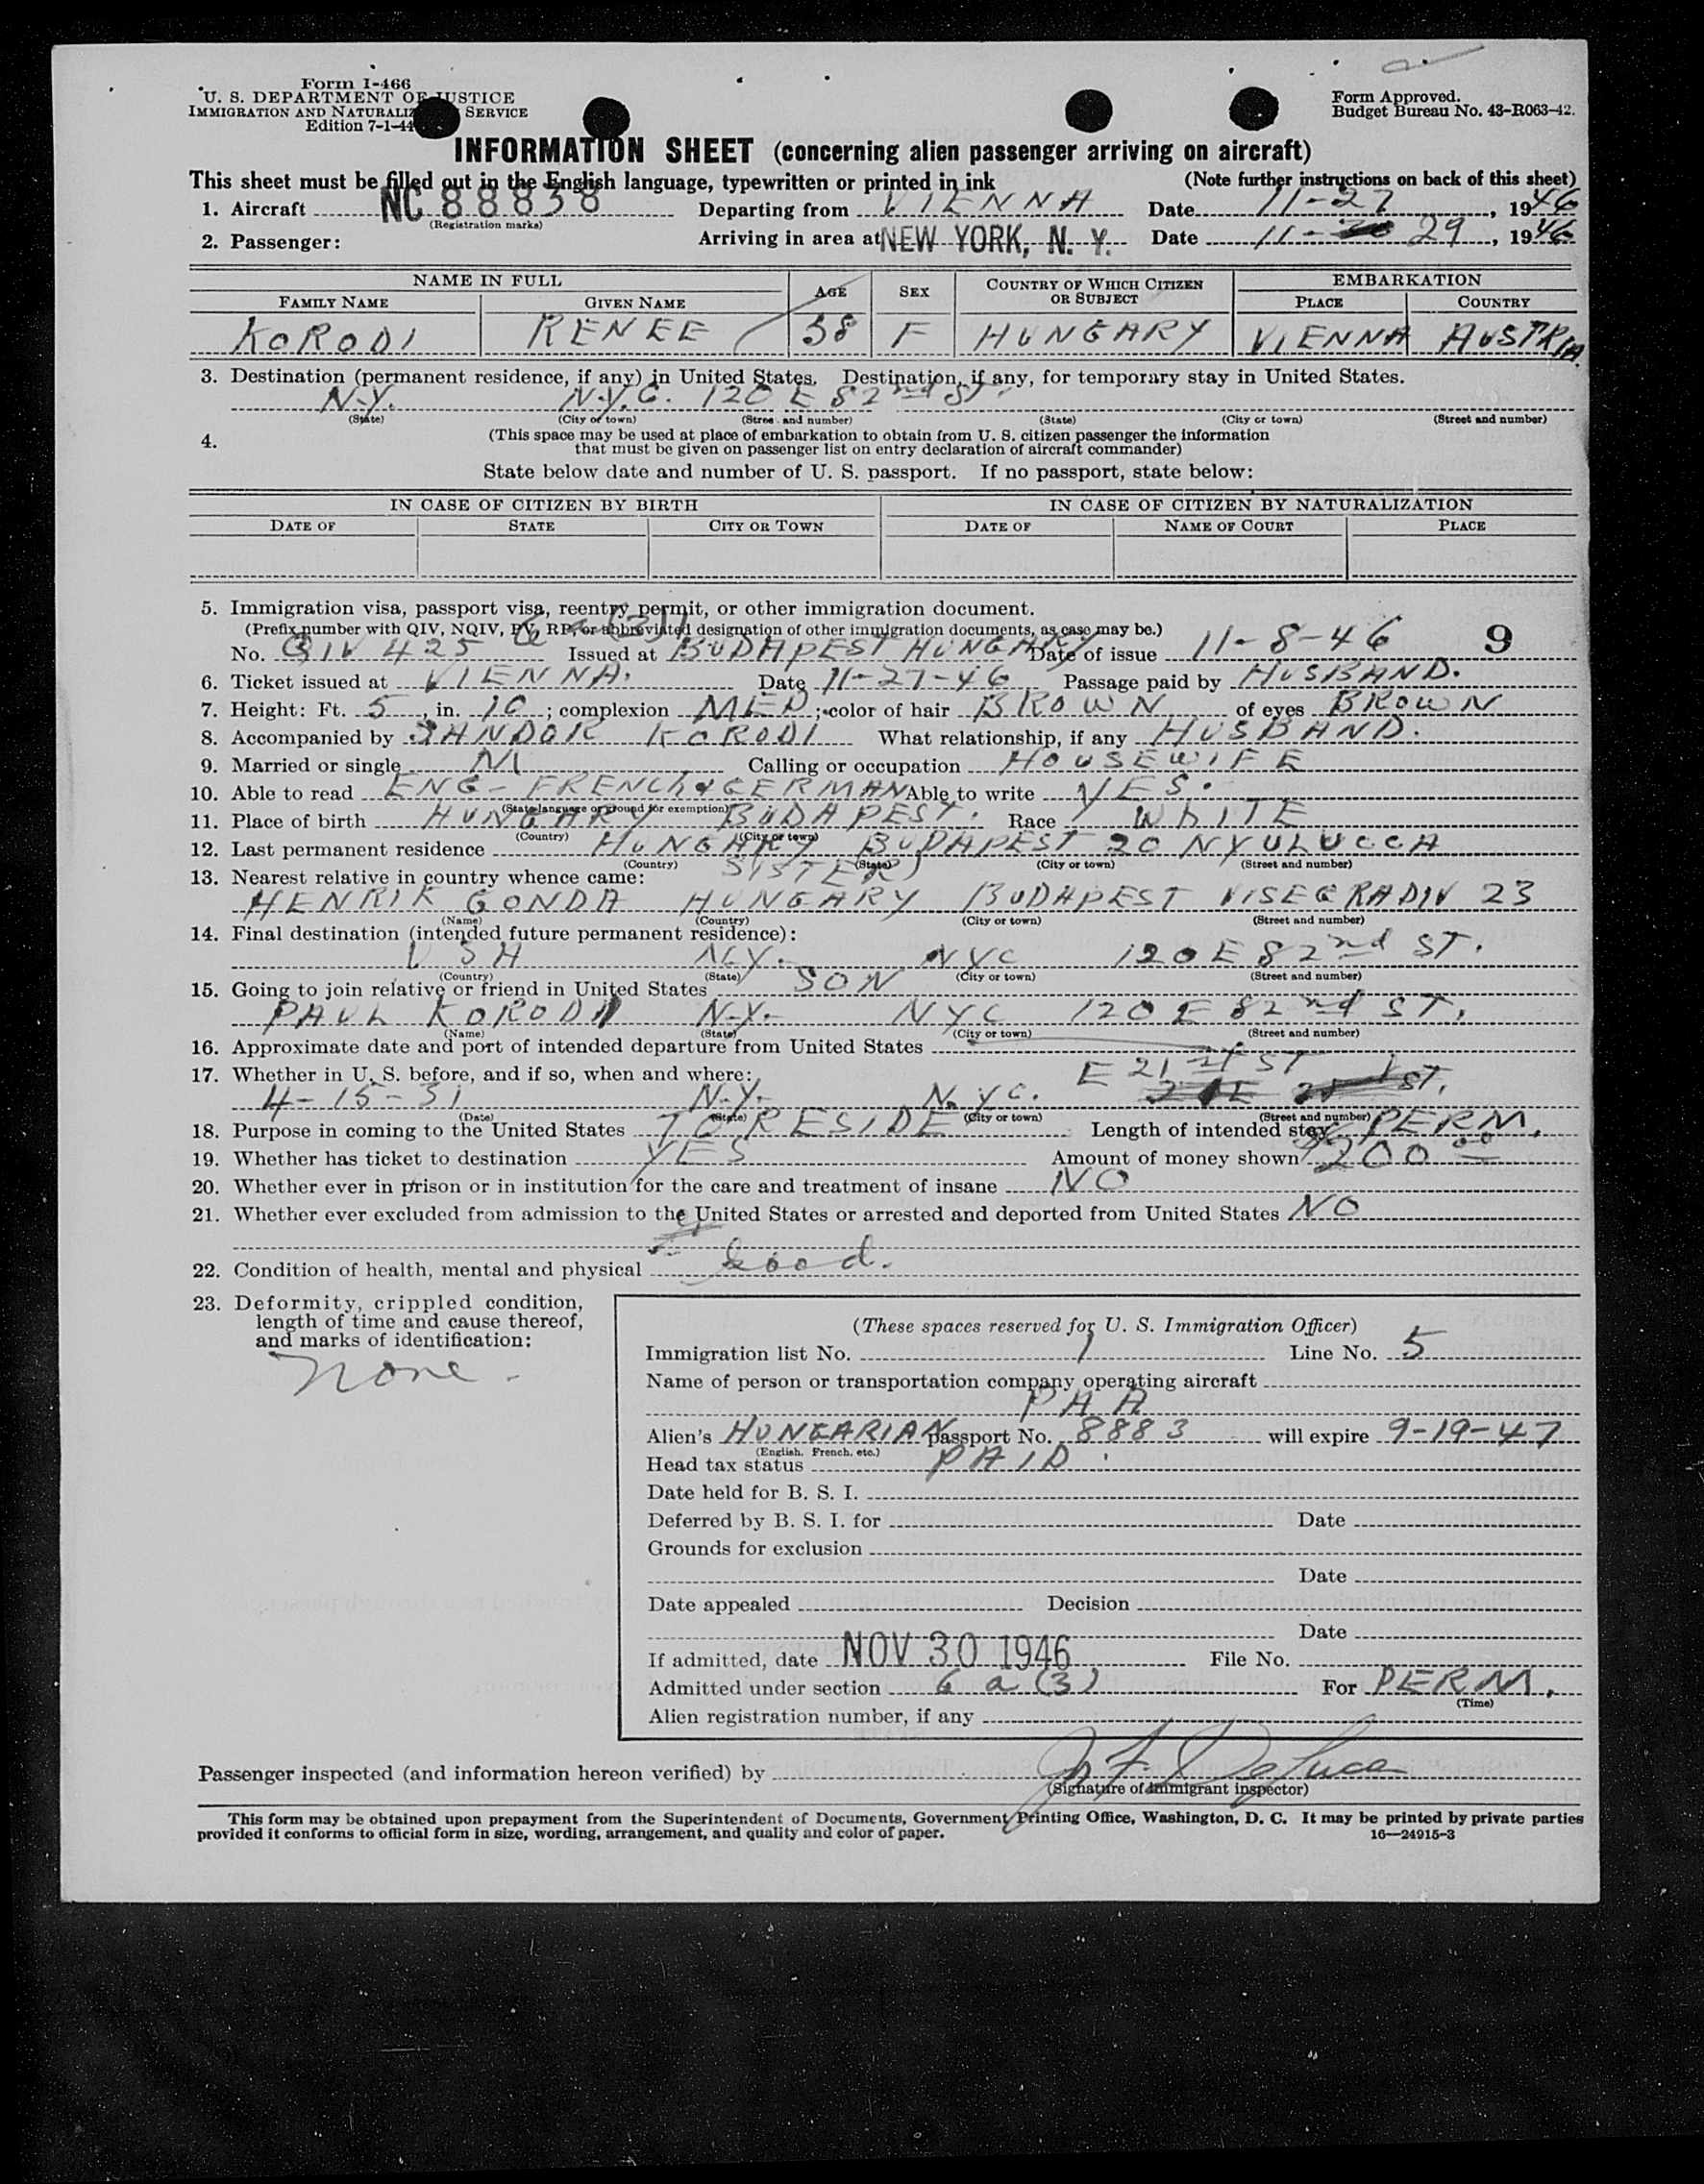 Form I-466
U. S. DEPARTMENT OF JUSTICE
IMMIGRATION AND NATURALIZATION SERVICE
Edition 7-1-44
Form Approved.
Budget Bureau No. 43-R063-42.
INFORMATION SHEET (concerning alien passenger arriving on aircraft)
This sheet must be filled out in the English language, typewritten or printed in ink (Note further instructions on back of this sheet)
1. Aircraft NC 88838 Departing from VIENNA Date 11-27, 1946
(Registration marks)
2. Passenger: Arriving in area at NEW YORK, N. Y. Date 11- 29, 1946
NAME IN FULL AGE SEX COUNTRY OF WHICH CITIZEN OR SUBJECT EMBARKATION
FAMILY NAME GIVEN NAME PLACE COUNTRY
KORODI RENEE 38 F HUNGARY VIENNA AUSTRIA
3. Destination (permanent residence, if any) in United States. Destination, if any, for temporary stay in United States.
N.Y. N.Y.C. 120 E 82nd ST.
(State) (City or town) (Street and number) (State) (City or town) (Street and number)
4. (This space may be used at place of embarkation to obtain from U. S. citizen passenger the information
that must be given on passenger list on entry declaration of aircraft commander)
State below date and number of U. S. passport. If no passport, state below:
IN CASE OF CITIZEN BY BIRTH IN CASE OF CITIZEN BY NATURALIZATION
DATE OF STATE CITY OR TOWN DATE OF NAME OF COURT PLACE
5. Immigration visa, passport visa, reentry permit, or other immigration document.
6 a (3)
(Prefix number with QIV, NQIV, PV, RP, or abbreviated designation of other immigration documents, as case may be.)
No. QIV 425 Issued at BUDAPEST HUNGARY Date of issue 11-8-46 9
6. Ticket issued at VIENNA. Date 11-27-46 Passage paid by HUSBAND.
7. Height: Ft. 5, in. 10; complexion MED; color of hair BROWN of eyes BROWN
8. Accompanied by SANDOR KORODI What relationship, if any HUSBAND.
9. Married or single M Calling or occupation HOUSEWIFE
10. Able to read ENG- FRENCH & GERMAN Able to write YES.
(State language or ground for exemption)
11. Place of birth HUNGARY BUDAPEST. Race WHITE
(Country) (City or town)
12. Last permanent residence HUNGARY BUDAPEST 20 NYULUCCA
(Country) (State) (City or town) (Street and number)
13. Nearest relative in country whence came: SISTER)
HENRIK GONDA HUNGARY BUDAPEST VISEGRADIV 23
(Name) (Country) (City or town) (Street and number)
14. Final destination (intended future permanent residence):
USA N.Y. NYC 120 E 82nd ST.
(Country) (State) (City or town) (Street and number)
15. Going to join relative or friend in United States SON
PAUL KORODI N.Y. NYC 120 E 82nd ST.
(Name) (State) (City or town) (Street and number)
16. Approximate date and port of intended departure from United States
17. Whether in U. S. before, and if so, when and where: E 21st ST
4-15-31 N.Y. N.Y.C. ST.
(Date) (State) (City or town) (Street and number)
18. Purpose in coming to the United States TO RESIDE Length of intended stay PERM.
19. Whether has ticket to destination YES Amount of money shown 200.00
20. Whether ever in prison or in institution for the care and treatment of insane NO
21. Whether ever excluded from admission to the United States or arrested and deported from United States NO
22. Condition of health, mental and physical Good.
23. Deformity, crippled condition,
length of time and cause thereof,
and marks of identification:
None.
(These spaces reserved for U. S. Immigration Officer)
Immigration list No. 1 Line No. 5
Name of person or transportation company operating aircraft
PAA
Alien's HUNGARIAN passport No. 8883 will expire 9-19-47
(English, French, etc.)
Head tax status PAID.
Date held for B. S. I.
Deferred by B. S. I. for Date
Grounds for exclusion
Date
Date appealed Decision
Date
If admitted, date NOV 30 1946 File No.
Admitted under section 6 a (3) For PERM.
(Time)
Alien registration number, if any
Passenger inspected (and information hereon verified) by
(Signature of immigrant inspector)
This form may be obtained upon prepayment from the Superintendent of Documents, Government Printing Office, Washington, D. C. It may be printed by private parties
provided it conforms to official form in size, wording, arrangement, and quality and color of paper. 16—24915-3